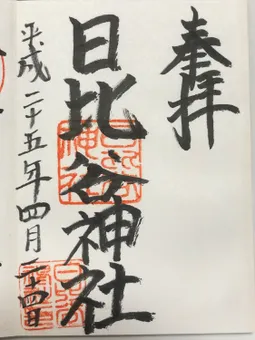 奉拝
日比谷神社
平成二十五年四月二十四日